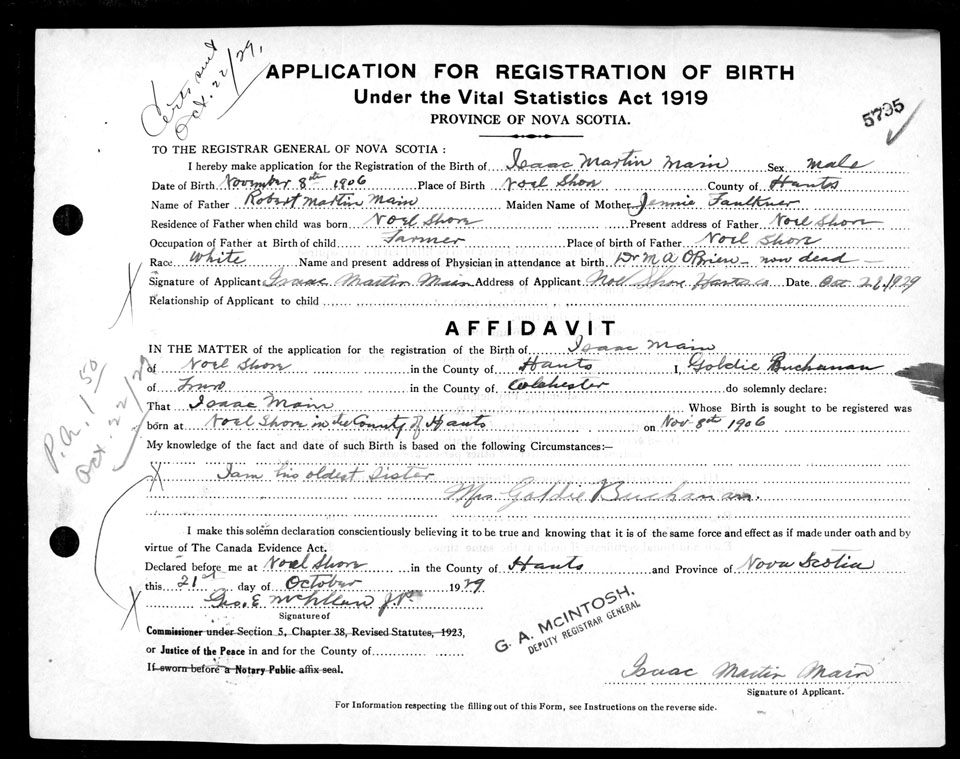 Certs sent
Oct. 22/29,
APPLICATION FOR REGISTRATION OF BIRTH
Under the Vital Statistics Act 1919
PROVINCE OF NOVA SCOTIA.
5795
TO THE REGISTRAR GENERAL OF NOVA SCOTIA :
I hereby make application for the Registration of the Birth of Isaac Martin Main Sex male
Date of Birth November 8th 1906 Place of Birth Noel Shore County of Hants
Name of Father Robert Martin Main Maiden Name of Mother Jennie Faulkner
Residence of Father when child was born Noel Shore Present address of Father Noel Shore
Occupation of Father at Birth of child Farmer Place of birth of Father Noel Shore
Race White Name and present address of Physician in attendance at birth Dr M A O'Brien - now dead -
Signature of Applicant Isaac Martin Main Address of Applicant Noel Shore Hants Co Date Oct 1929
Relationship of Applicant to child
AFFIDAVIT
IN THE MATTER of the application for the registration of the Birth of Isaac Main
of Noel Shore in the County of Hants I, Goldie Buchanan
of Truro in the County of Colchester do solemnly declare:
That Isaac Main Whose Birth is sought to be registered was
born at Noel Shore in the County of Hants on Nov 8th 1906
P.a. 1.50
Oct. 22/29
My knowledge of the fact and date of such Birth is based on the following Circumstances:
I am his oldest Sister
Mrs. Goldie Buchanan.
I make this solemn declaration conscientiously believing it to be true and knowing that it is of the same force and effect as if made under oath and by
virtue of The Canada Evidence Act.
Declared before me at Noel Shore in the County of Hants and Province of Nova Scotia
this 21st day of October 1929
Geo. E. J.P.
Signature of
Commissioner under Section 5, Chapter 38, Revised Statutes, 1923,
or Justice of the Peace in and for the County of
If sworn before a Notary Public affix seal.
G. A. McINTOSH,
DEPUTY REGISTRAR GENERAL
Isaac Martin Main
Signature of Applicant.
For Information respecting the filling out of this Form, see Instructions on the reverse side.